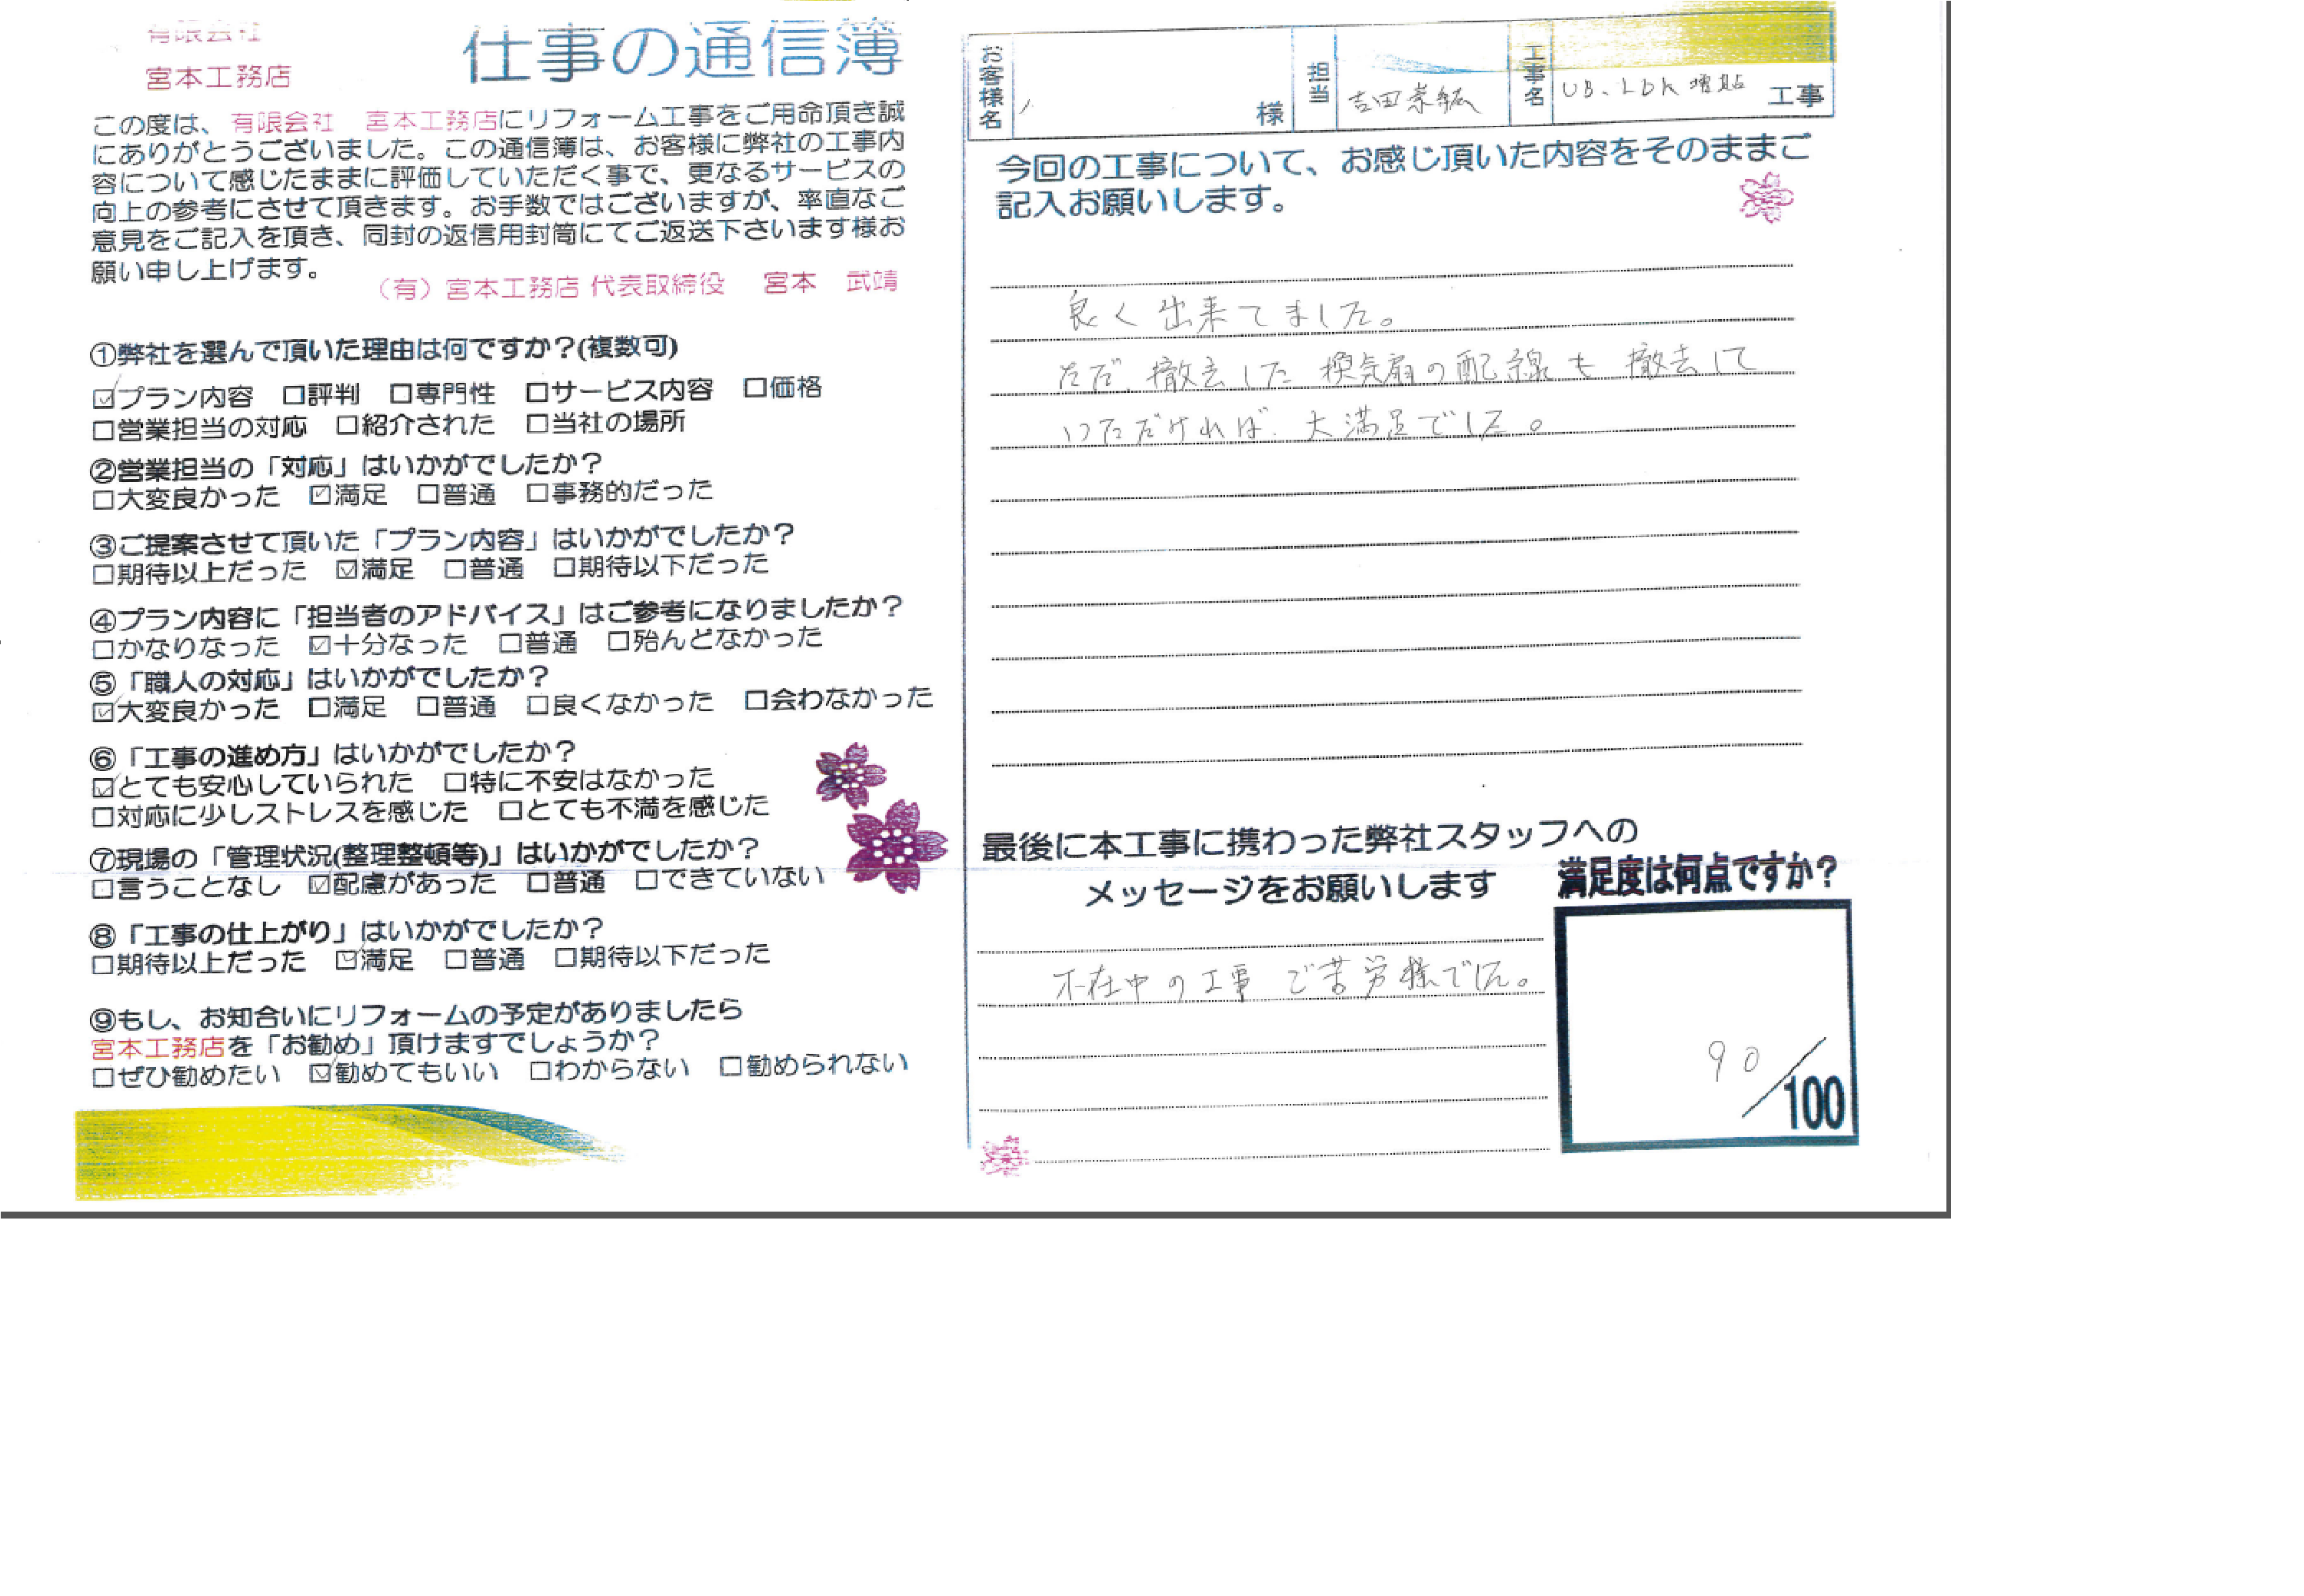 有限会社
宮本工務店
仕事の通信簿
この度は、有限会社　宮本工務店にリフォーム工事をご用命頂き誠
にありがとうございました。この通信簿は、お客様に弊社の工事内
容について感じたままに評価していただく事で、更なるサービスの
向上の参考にさせて頂きます。お手数ではございますが、率直なご
意見をご記入を頂き、同封の返信用封筒にてご返送下さいます様お
願い申し上げます。
（有）宮本工務店 代表取締役　宮本　武靖
①弊社を選んで頂いた理由は何ですか？(複数可)
☑プラン内容　□評判　□専門性　□サービス内容　□価格
□営業担当の対応　□紹介された　□当社の場所
②営業担当の「対応」はいかがでしたか？
□大変良かった　☑満足　□普通　□事務的だった
③ご提案させて頂いた「プラン内容」はいかがでしたか？
□期待以上だった　☑満足　□普通　□期待以下だった
④プラン内容に「担当者のアドバイス」はご参考になりましたか？
□かなりなった　☑十分なった　□普通　□殆んどなかった
⑤「職人の対応」はいかがでしたか？
☑大変良かった　□満足　□普通　□良くなかった　□会わなかった
⑥「工事の進め方」はいかがでしたか？
☑とても安心していられた　□特に不安はなかった
□対応に少しストレスを感じた　□とても不満を感じた
⑦現場の「管理状況(整理整頓等)」はいかがでしたか？
□言うことなし　☑配慮があった　□普通　□できていない
⑧「工事の仕上がり」はいかがでしたか？
□期待以上だった　☑満足　□普通　□期待以下だった
⑨もし、お知合いにリフォームの予定がありましたら
宮本工務店を「お勧め」頂けますでしょうか？
□ぜひ勧めたい　☑勧めてもいい　□わからない　□勧められない
お客様名　様　担当　吉田崇紘　工事名　UB、LDK増貼　工事
今回の工事について、お感じ頂いた内容をそのままご
記入お願いします。
良く出来てました。
ただ、撤去した換気扇の配線も撤去して
いただければ、大満足でした。
最後に本工事に携わった弊社スタッフへの
メッセージをお願いします
不在中の工事ご苦労様でした。
満足度は何点ですか？
90/100